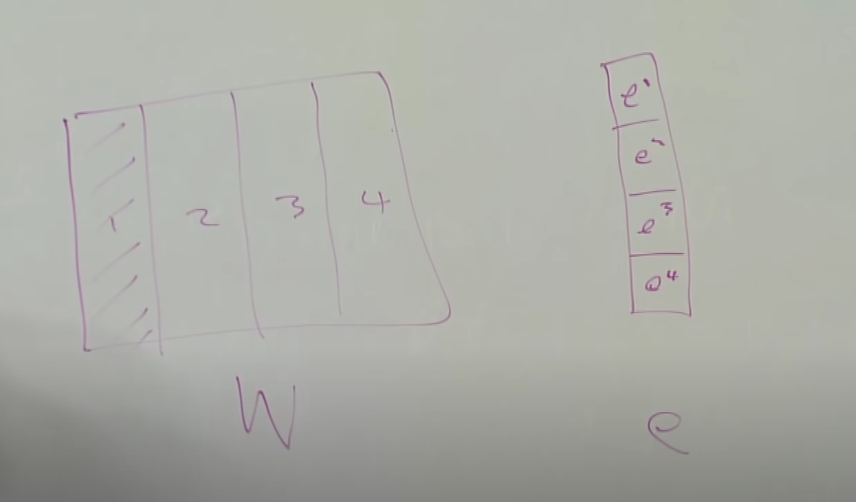 1 2 3 4
e¹
e²
e³
e⁴
W e